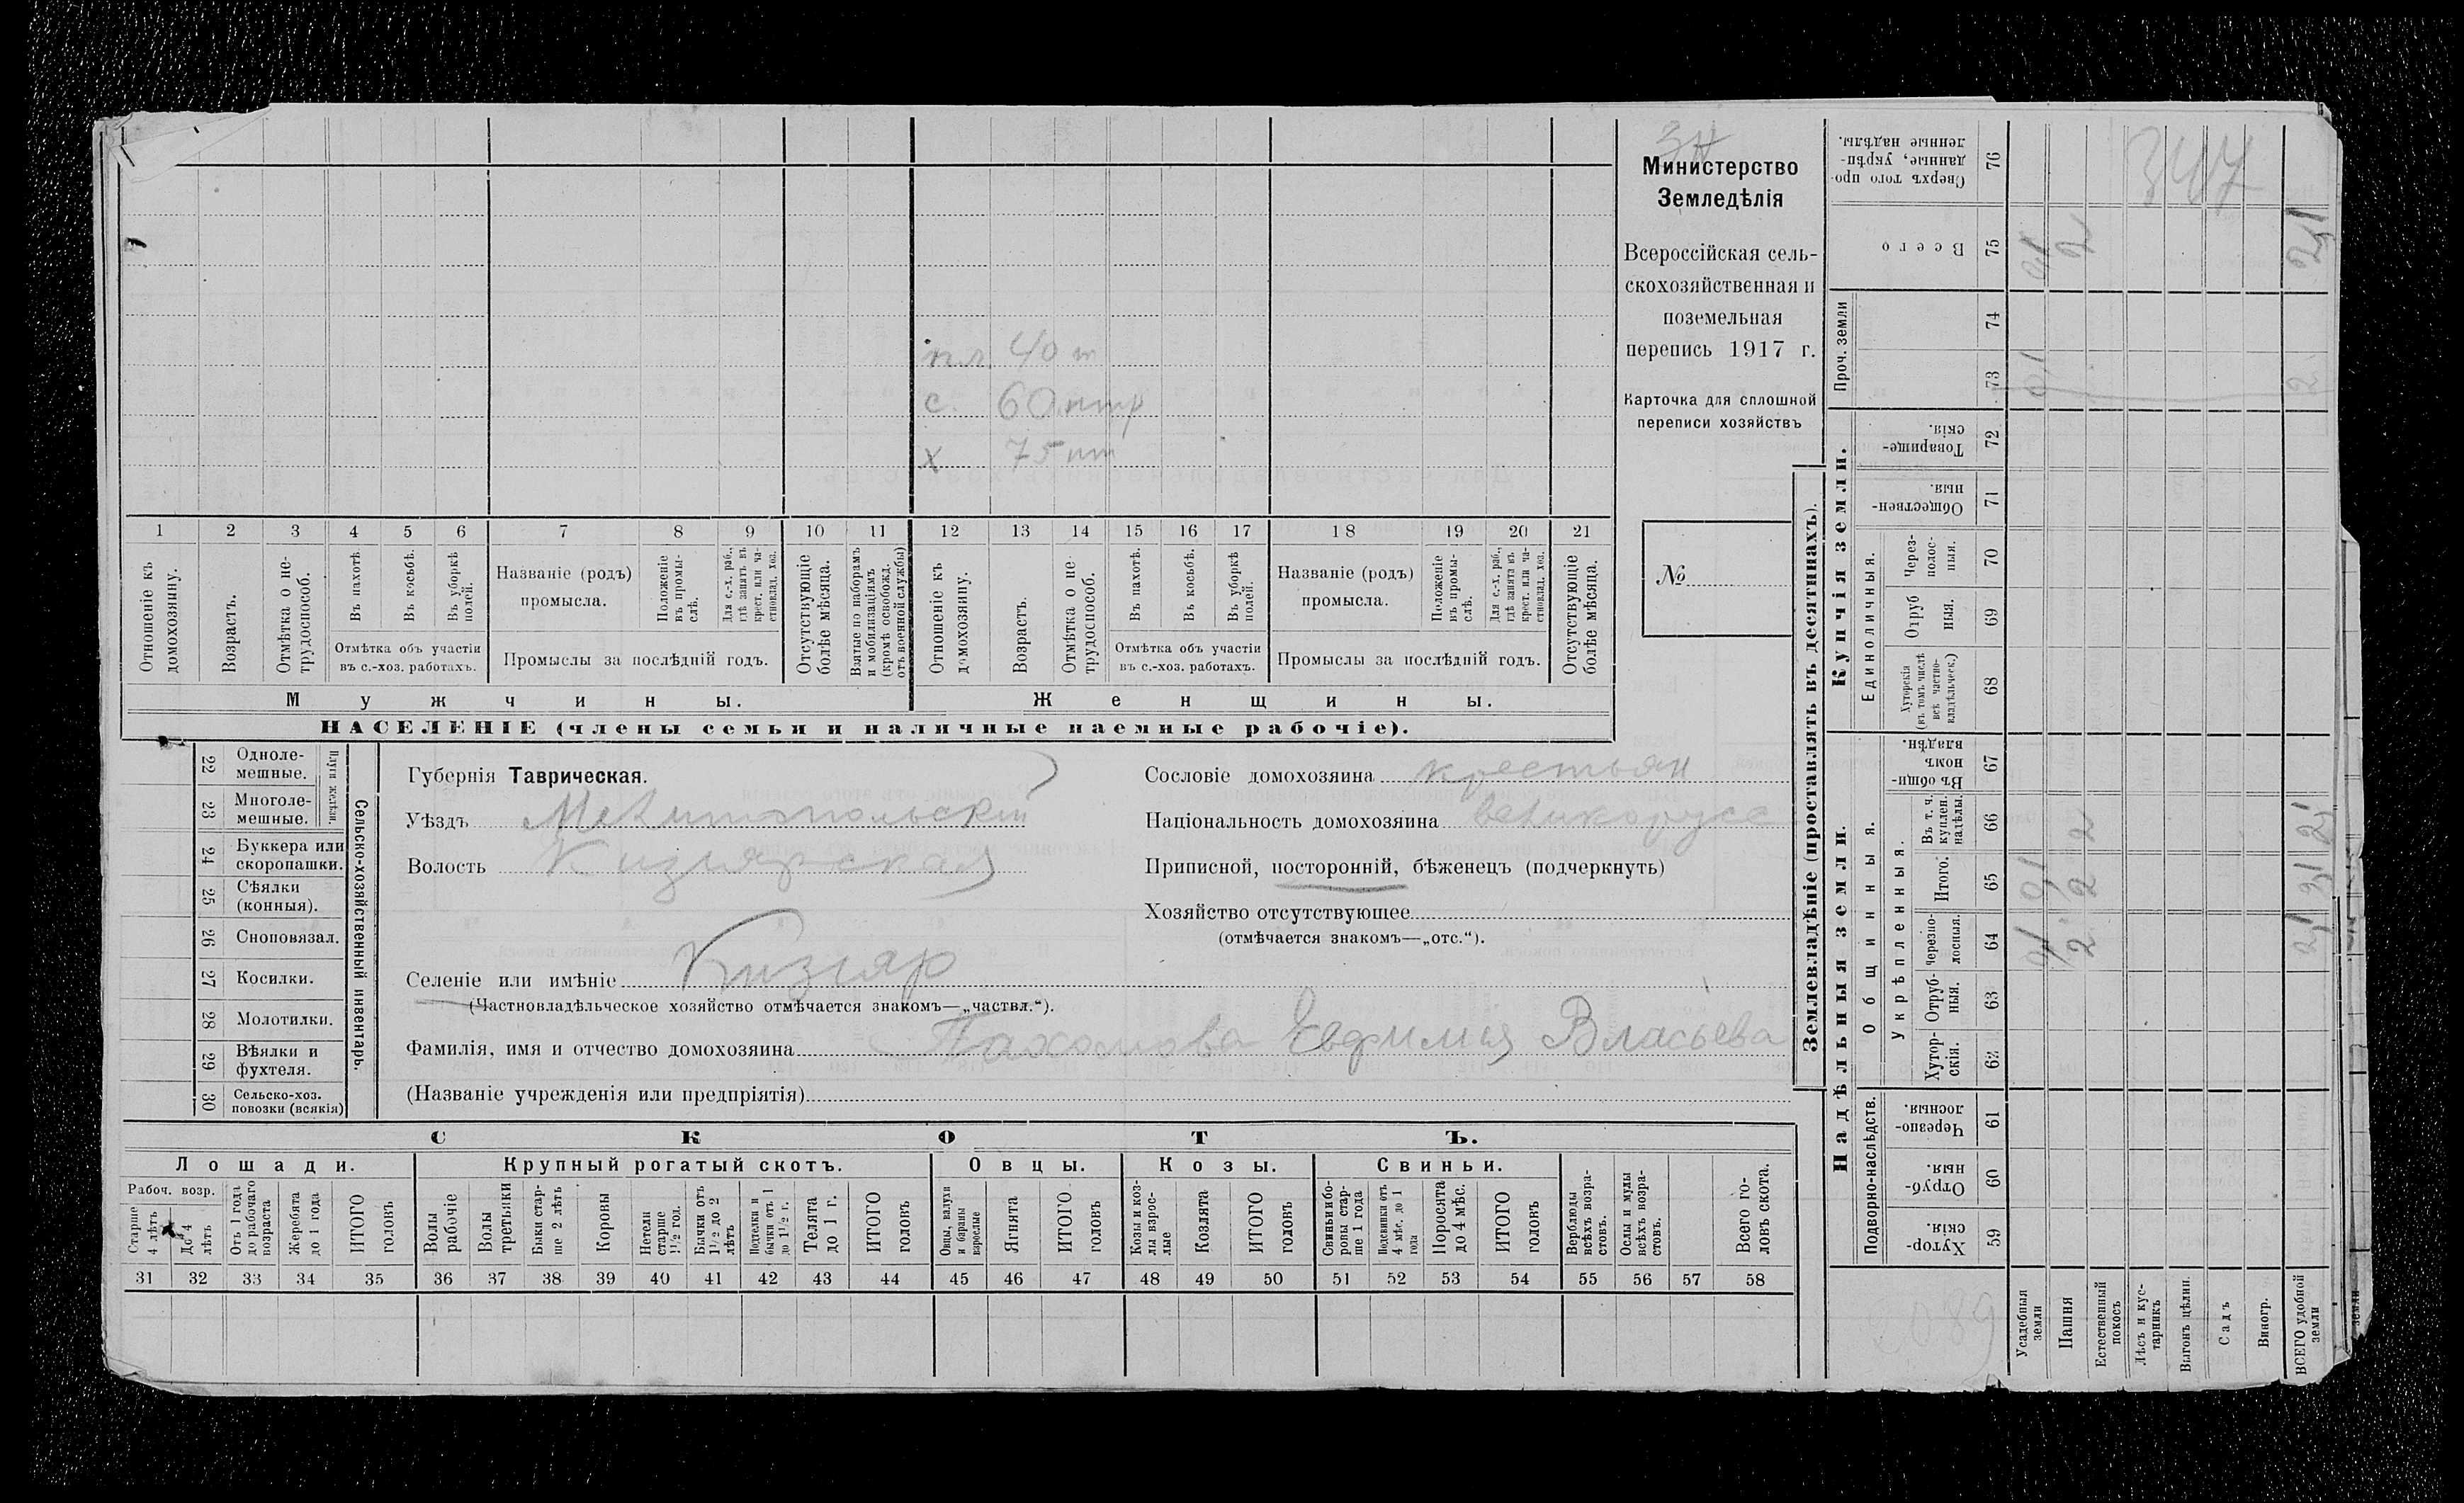 пл. 40 т
с. 60 птр
х 75 пт
1 2 3 4 5 6 7 8 9 10 11 12 13 14 15 16 17 18 19 20 21
Отношеніе къ домохозяину.
Возрастъ.
Отмѣтка о не-трудоспособ.
Въ пахотѣ
Въ косьбѣ.
Въ уборкѣ полей.
Отмѣтка объ участіи
въ с.-хоз. работахъ.
Названіе (родъ)
промысла.
Положеніе въ промы-слѣ.
Для с.-х. раб., гдѣ занятъ въ крест. или ча-стновлад. хоз.
Промыслы за послѣдній годъ.
Отсутствующіе болѣе мѣсяца.
Взятые по наборамъ и мобилизаціямъ (кромѣ освобожд. отъ военной службы)
Отношеніе къ домохозяину.
Возрастъ.
Отмѣтка о не трудоспособ.
Въ пахотѣ.
Въ косьбѣ.
Въ уборкѣ полей.
Отмѣтка объ участіи
въ с.-хоз. работахъ.
Названіе (родъ)
промысла.
Положеніе въ промы-слѣ.
Для с.-х. раб., гдѣ занята въ крест. или ча-стновлад. хоз.
Промыслы за послѣдній годъ.
Отсутствующіе болѣе мѣсяца.
Мужчины.
Женщины.
НАСЕЛЕНІЕ (члены семьи и наличные наемные рабочіе).
Министерство
Земледѣлія
Всероссійская сель-
скохозяйственная и
поземельная
перепись 1917 г.
Карточка для сплошной
переписи хозяйствъ
№
22 Одноле-мешные.
23 Многоле-мешные.
Плуги желѣзн.
24 Буккера или скоропашки.
25 Сѣялки (конныя).
26 Сноповязал.
27 Косилки.
28 Молотилки.
29 Вѣялки и фухтеля.
30 Сельско-хоз. повозки (всякія)
Сельско-хозяйственный инвентарь.
Губернія Таврическая.
Уѣздъ Мелитопольскій
Волость Кизіярская
Селеніе или имѣніе Кизіяр
(Частновладѣльческое хозяйство отмѣчается знакомъ—„частвл.“).
Фамилія, имя и отчество домохозяина Пахомова Евфимия Власьева
(Названіе учрежденія или предпріятія)
Сословіе домохозяина крестьян
Національность домохозяина великорусс
Приписной, посторонній, бѣженецъ (подчеркнуть)
Хозяйство отсутствующее
(отмѣчается знакомъ—„отс.“).
СКОТЪ.
Лошади. Крупный рогатый скотъ. Овцы. Козы. Свиньи.
Рабоч. возр.
Старше 4 лѣтъ
До 4 лѣтъ
Отъ 1 года до рабочаго возраста
Жеребята до 1 года
ИТОГО головъ
Волы рабочіе
Волы третьяки
Быки стар-ше 2 лѣтъ
Коровы
Нетели старше 1½ год.
Бычки отъ 1½ до 2 лѣтъ
Подтелки и бычки отъ 1 до 1½ г.
Телята до 1 г.
ИТОГО головъ
Овцы, валухи и бараны взрослые
Ягнята
ИТОГО головъ
Козы и коз-лы взрос-лые
Козлята
ИТОГО головъ
Свиньи и бо-ровы стар-ше 1 года
Подсвинки отъ 4 мѣс. до 1 года
Поросята до 4 мѣс.
ИТОГО головъ
Верблюды всѣхъ возра-стовъ.
Ослы и мулы всѣхъ возра-стовъ.
Всего го-ловъ скота.
31 32 33 34 35 36 37 38 39 40 41 42 43 44 45 46 47 48 49 50 51 52 53 54 55 56 57 58
Землевладѣніе (проставлять въ десятинахъ).
Надѣльныя земли.
Купчія земли.
Проч. земли
Подворно-наслѣдств.
Общинныя.
Укрѣпленныя.
Единоличныя.
Сверхъ того про-данные, укрѣп-ленные надѣлы. 76
Всего 75
74
73
Товарище-скія. 72
Обществен-ныя. 71
Через-полос-ныя. 70
Отруб ныя. 69
Хуторскія (въ томъ числѣ всѣ частно-владѣльческ.) 68
Въ общи-номъ владѣн. 67
Въ т. ч. куплен. надѣлы. 66
Итого. 65
Черезпо-лосныя. 64
Отруб-ныя. 63
Хутор-скія. 62
Черезпо-лосныя. 61
Отруб-ныя. 60
Хутор-скія. 59
Усадебныя земли
Пашня
Естественный покосъ
Лѣсъ и кус-тарникъ
Выгонъ цѣлин.
Садъ
Виногр.
ВСЕГО удобной земли
347